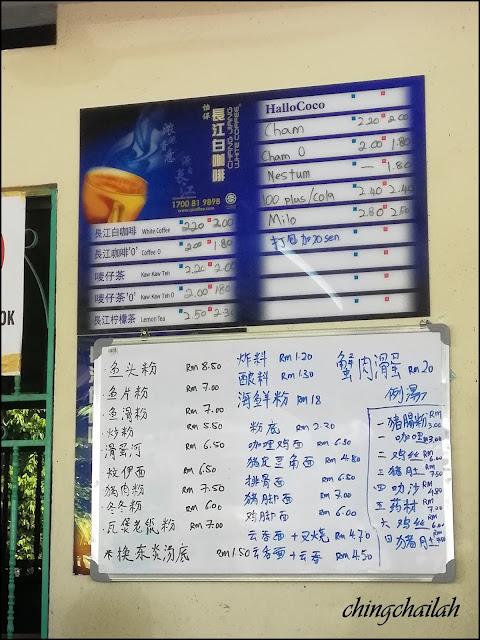 怡保
長江白咖啡
CHANG JIANG
WHITE COFFEE
濃郁香意
源自
長江
1700 81 9898
長江白咖啡 White Coffee 2.20 2.00
長江咖啡'O' Coffee O 2.00 1.80
嘜仔茶 Kaw Kaw Teh 2.20 2.00
嘜仔茶'O' Kaw Kaw Teh O 2.00 1.80
長江柠檬茶 Lemon Tea 2.50 2.30
HalloCoco
Cham 2.20 2.00
Cham O 2.00 1.80
Nestum — 1.80
100 plus/cola 2.40 2.40
Milo 2.80 2.50
打包加20sen
OK
鱼头粉 Rm 8.50
鱼片粉 Rm 7.00
鱼滑粉 Rm 7.00
炒粉 Rm 5.50
滑蛋河 Rm 6.50
炆伊面 Rm 6.50
猪肉粉 Rm 7.50
冬冬粉 Rm 6.00
瓦煲老鼠粉 Rm 7.00
*换东炎汤底 Rm 1.50
炸料 Rm 1.20
酿料 Rm 1.30
海鲜粉 Rm 18
粉底 Rm 2.30
咖喱鸡面 Rm 6.80
猪皮豆角面 Rm 4.80
排骨面 Rm 6.50
猪脚面 Rm 7.00
鸡脚面 Rm 6.00
云吞面+叉烧 Rm 4.70
云吞面+云吞 Rm 4.50
蟹肉滑蛋 Rm 20
例汤
一猪腸粉 RM 3.00
一咖喱 RM
二鸡丝 RM 6.00
三猪肚 RM 7.50
四叻沙 RM 4.80
五药材 RM 7.20
六鸡丝 RM 6.00
日猪肚 RM
chingchailah